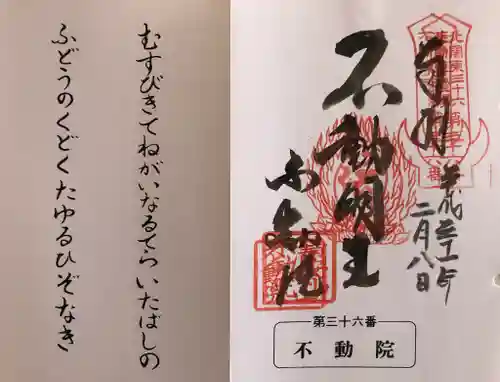 奉拝
平成三十年
二月八日
不動明王
不動院
第三十六番
不動院
むすびきてねがいなるてらいたばしの
ふどうのくどくたゆるひぞなき